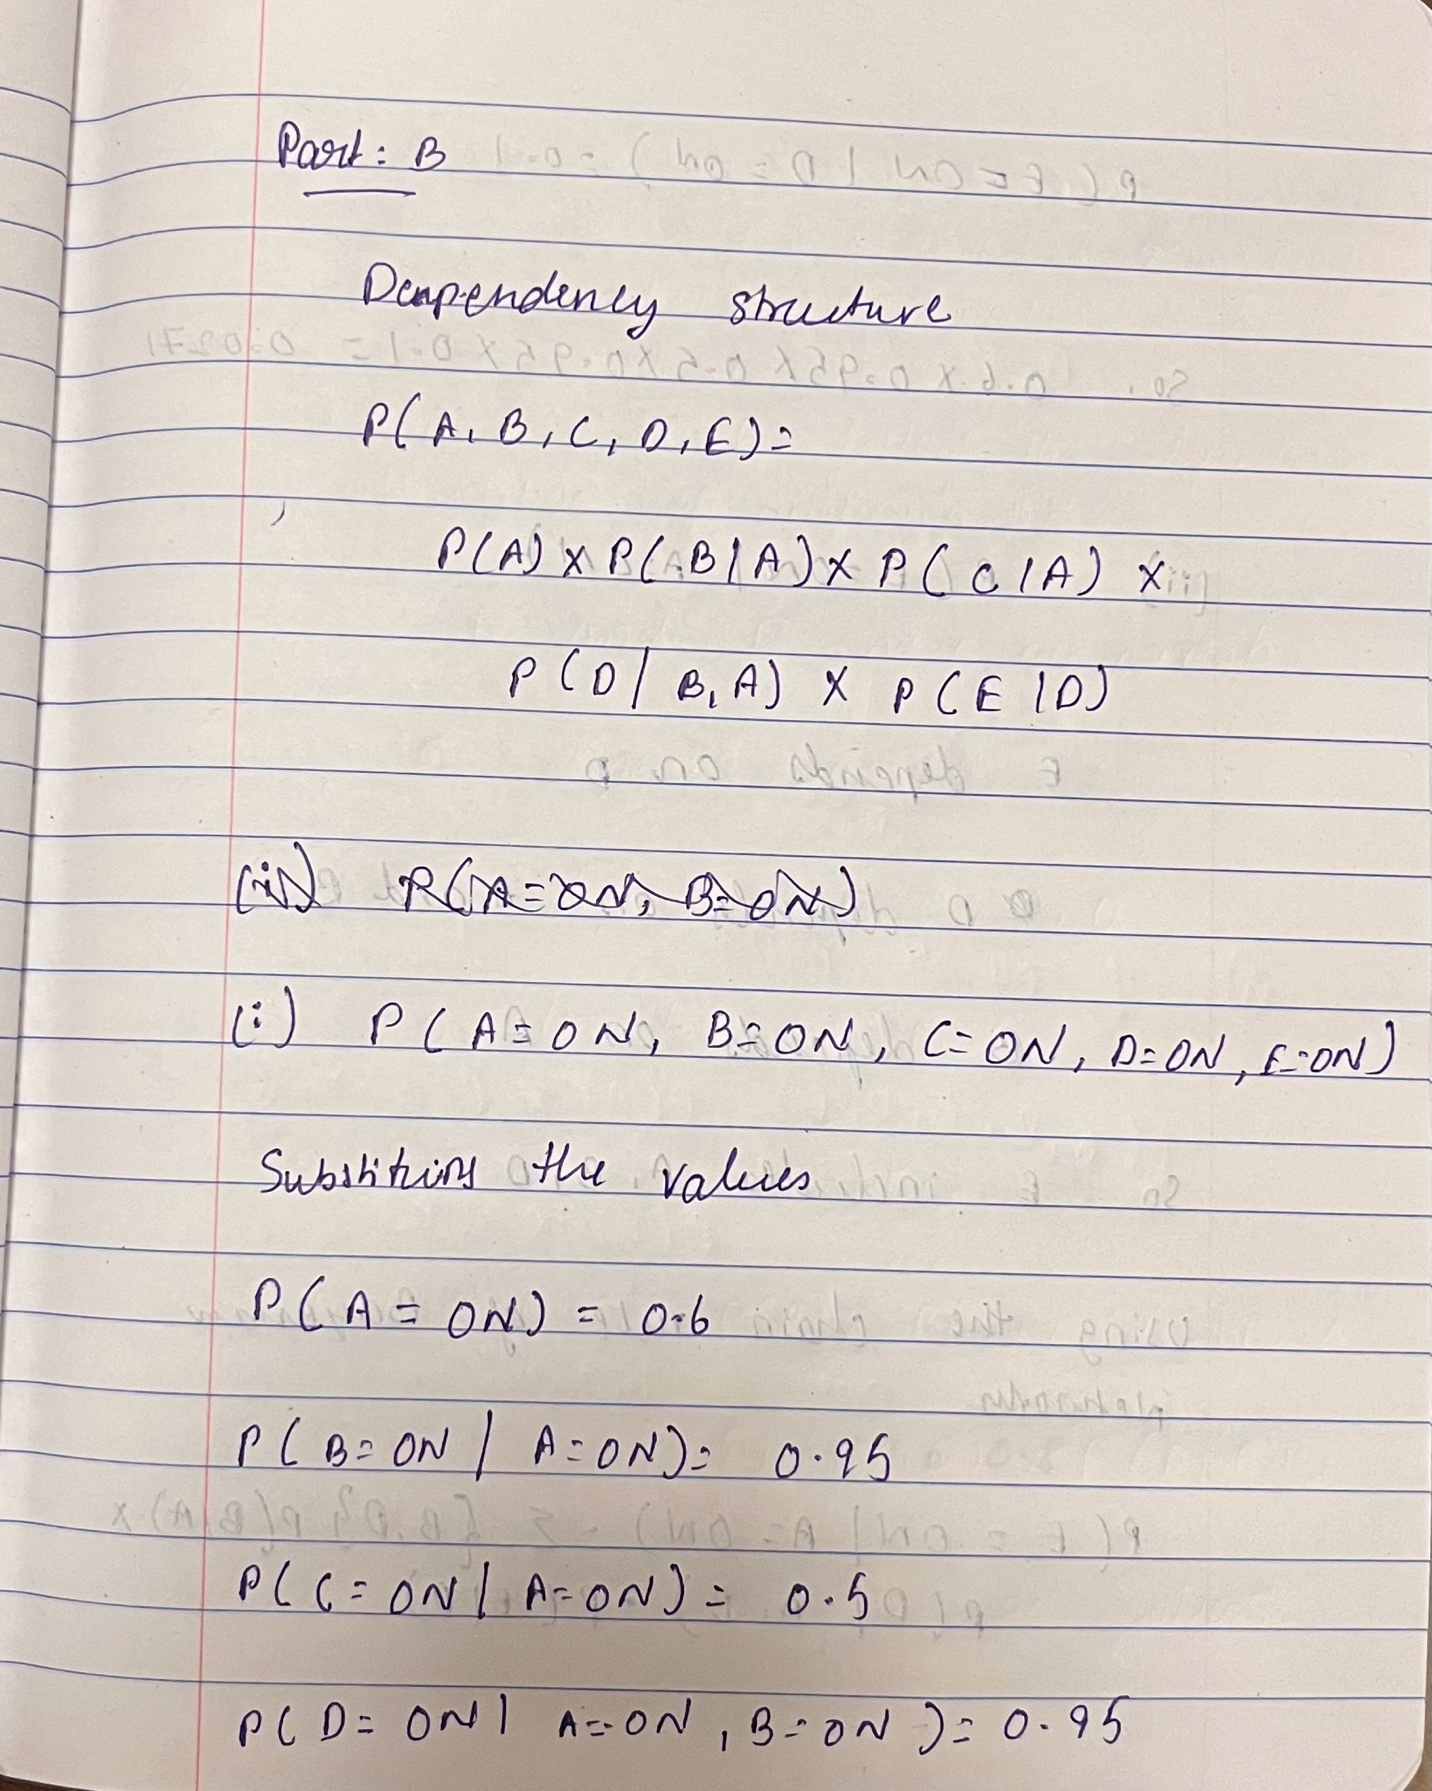 Part: B
Denpendency structure
P(A, B, C, D, E) =
P(A) x P(B|A) x P(C|A) x
P(D|B, A) x P(E|D)
(ii) P(A=ON, B=ON)
(i) P(A=ON, B=ON, C=ON, D=ON, E=ON)
the values
P(A = ON) = 0.6
P(B=ON | A=ON) = 0.95
P(C=ON | A=ON) = 0.5
P(D=ON | A=ON, B=ON) = 0.95